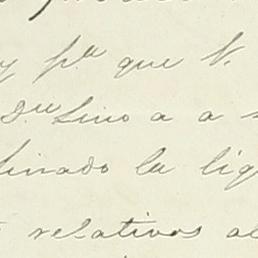 y pª que V.
Lino a a
inado la liq
relativos al